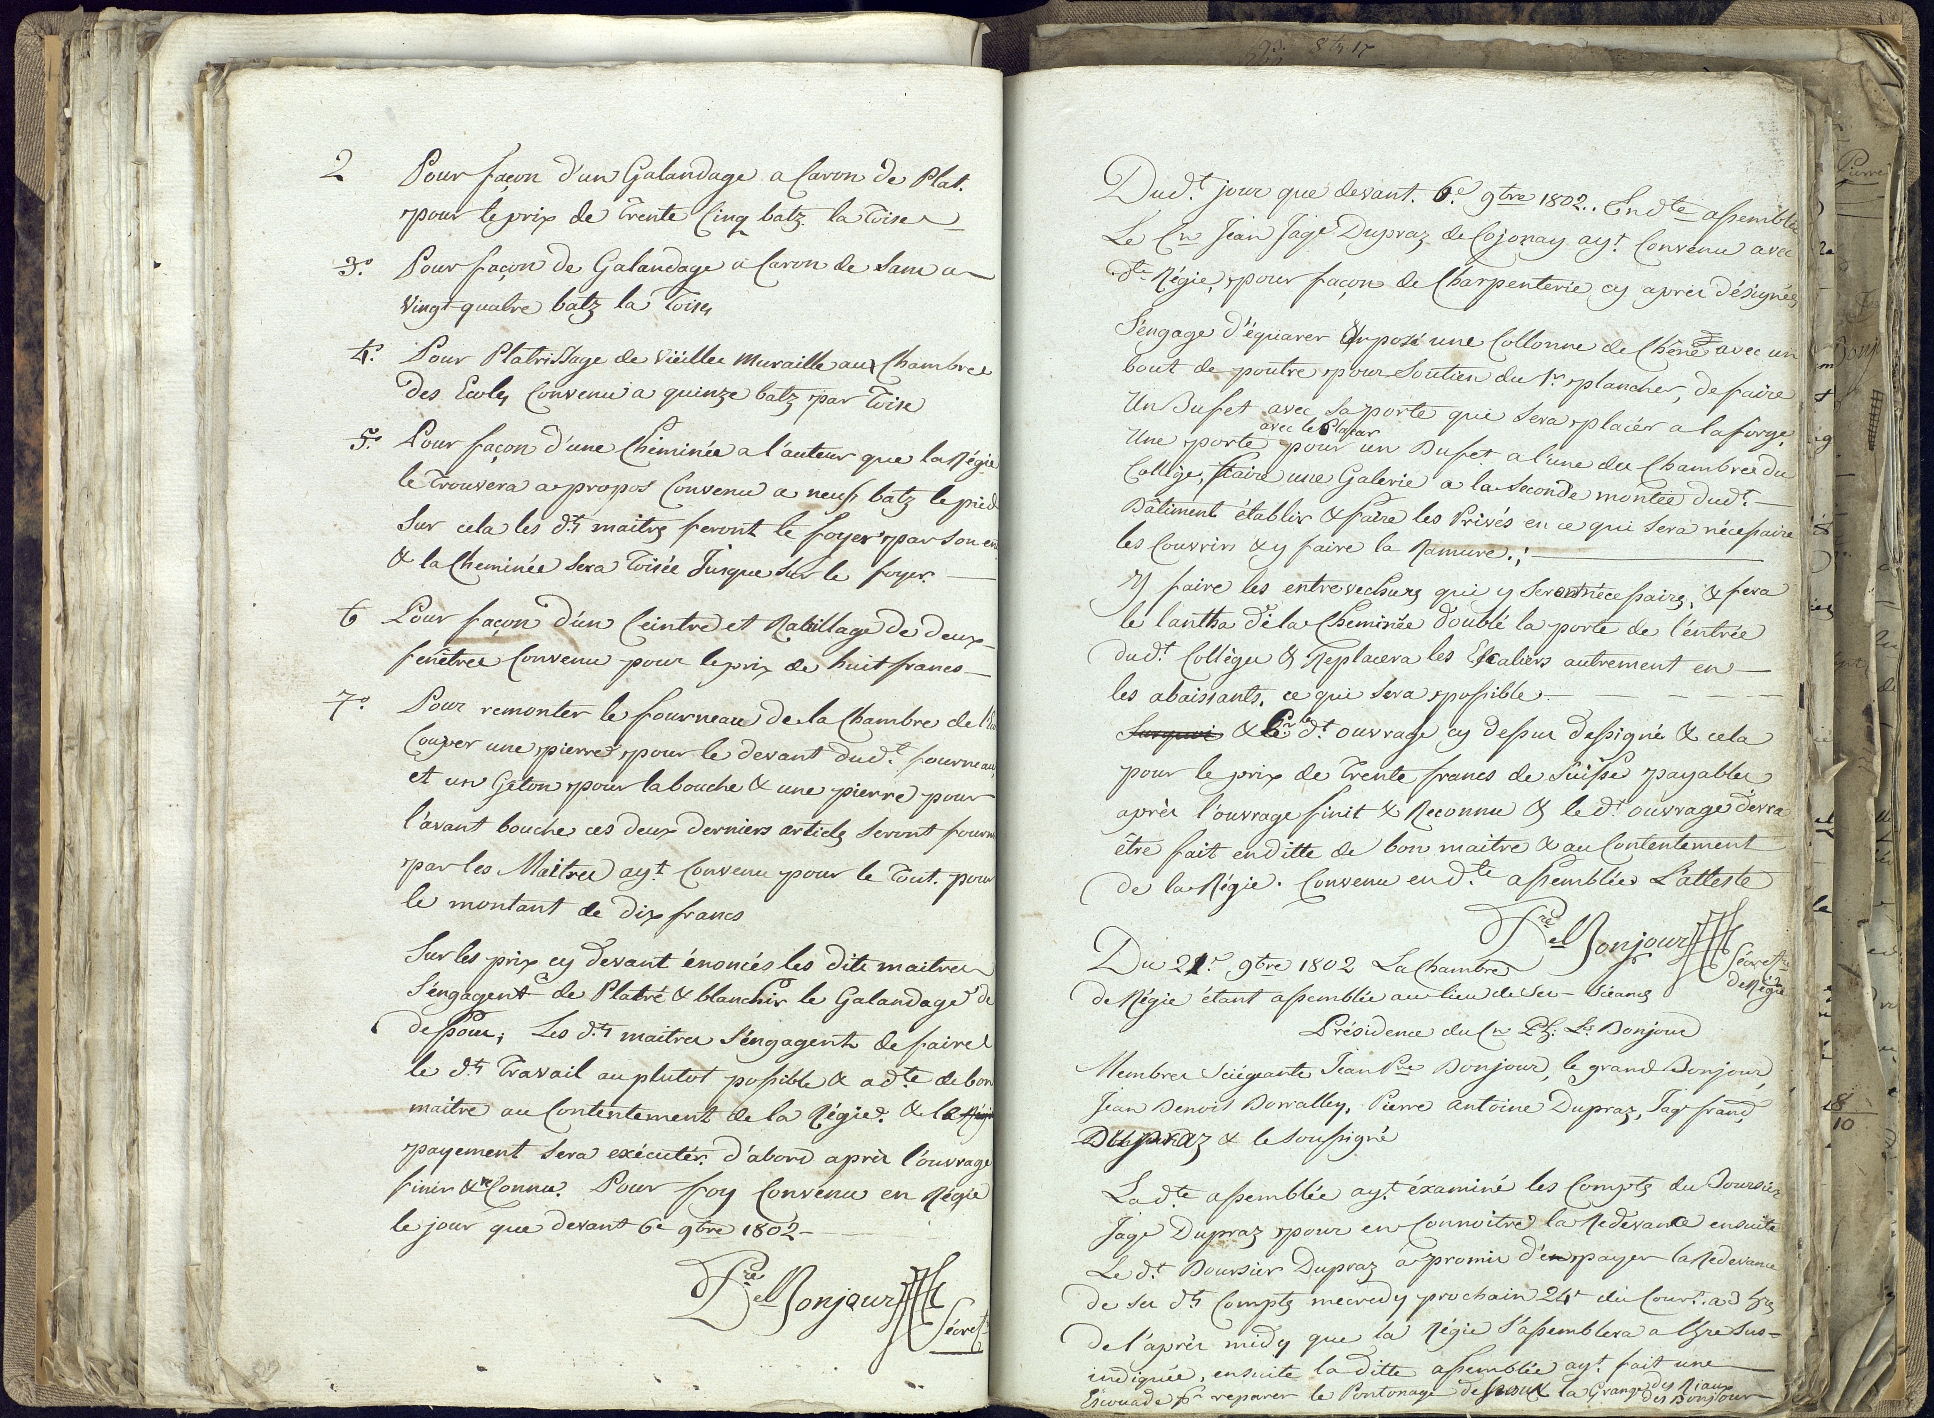 2 Pour façon d'un Galandage a Caron de Plat.
pour le prix de Trente Cinq batz la Toise
3.º Pour façon de Galandage a Caron de Sam a
Vingt-quatre batz la Toise
4.º Pour Platrissage de Vieille Muraille aux Chambres
des Ecoles Convenu a quinze batz par Toise
5.º Pour façon d'une Cheminée a l'auteur que la Régie
le Trouvera a propos Convenu a neuf batz le pied
Sur cela les d.ts maitres feront le foyer par son
& la Cheminée Sera Toisée Jusque Sur le foyer.
6 Pour façon d'un Ceintre et Rabillage de deux
fenêtres Convenu pour le prix de huit francs
7.º Pour remonter le fourneau de la Chambre de
Couper une pierre pour le devant dud.t fourneau
et un Gêton pour la bouche & une pierre pour
l'avant bouche ces deux derniers articles Seront fourni
par les Maitres ay.t Convenu pour le Tout. pour
le montant de dix francs
Sur les prix cy devant énoncés les dits maitres
S'engagent de Platré & blanchir le Galandage de
dessous; Les d.ts maitres S'engagent de faire
le d.t Travail au plutot possible & a d.te de bon
maitre au Contentement de la Régie. & le Régie
payement Sera exécuter d'abord après l'ouvrage
finir & Connu. Pour foy Convenu en Régie
le jour que devant 6e 9bre 1802
Pre el Bonjour Secret.
Dud.t jour que devant. 6.e 9bre 1802. En dte assemblée
Le Cn Jean Jaqe Dupraz de Cojonay ay.t Convenu avec
d.te Régie, pour façon de Charpenterie cy après désignée
S'engage d'équarer & posé une Collonne de Chêne avec un
bout de poutre pour Soutien du 1r plancher, de faire
Un Bufet avec Sa porte qui Sera placér a la forge,
avec le Plafar
Une porte pour un Bufet a l'une des Chambres du
Collège, faire une Galerie a la Seconde montée dud.t
Bâtiment établir & faire les Privés en ce qui Sera nécessaire
les Couvrir & y faire la Ramure.
Y faire les entrevechures qui y Seront nécessaires, & fera
le lantha de la Cheminée doublé la porte de l'entrée
dud.t Collège & Replacera les Escaliers autrement en
les abaissants, ce qui Sera possible
Surquoi & Pr le d.t ouvrage cy dessus dessigné & cela
pour le prix de Trente francs de Suisse payables
après l'ouvrage finit & Reconnu & le d.t ouvrage devra
être fait en ditte de bon maitre & au Contentement
de la Régie. Convenu en d.te assemblée L'atteste
Pre el Bonjour Secrettre
de Régie
Du 21.e 9bre 1802 La Chambre
de Régie étant assemblée au lieu de Ses Séances
Présidence du Cn Pl. Ls Bonjour
Membres Sciégeants Jean Pre Bonjour, le grand Bonjour,
Jean Benoit Dorralley, Pierre Antoine Dupraz, Jaqe franc
Dupraz & le Soussigné
La dte assemblée ay.t éxaminé les Comptes du Boursier
Jaqe Dupraz pour en Connoitre la Redevance ensuite
Le d.t Boursier Dupraz a promis d'en payer la Redevance
de Ses d.ts Comptes mecredy prochain 24e du Cour.t a 3 hres
de l'après midy que la Régie S'assemblera a l'hre Sus-
indiquée, ensuite la ditte assemblée ay.t fait une
Escouade pr reparer le Pontonage dessous la Grange des Riaux
des Bonjour
Pierre
18
10